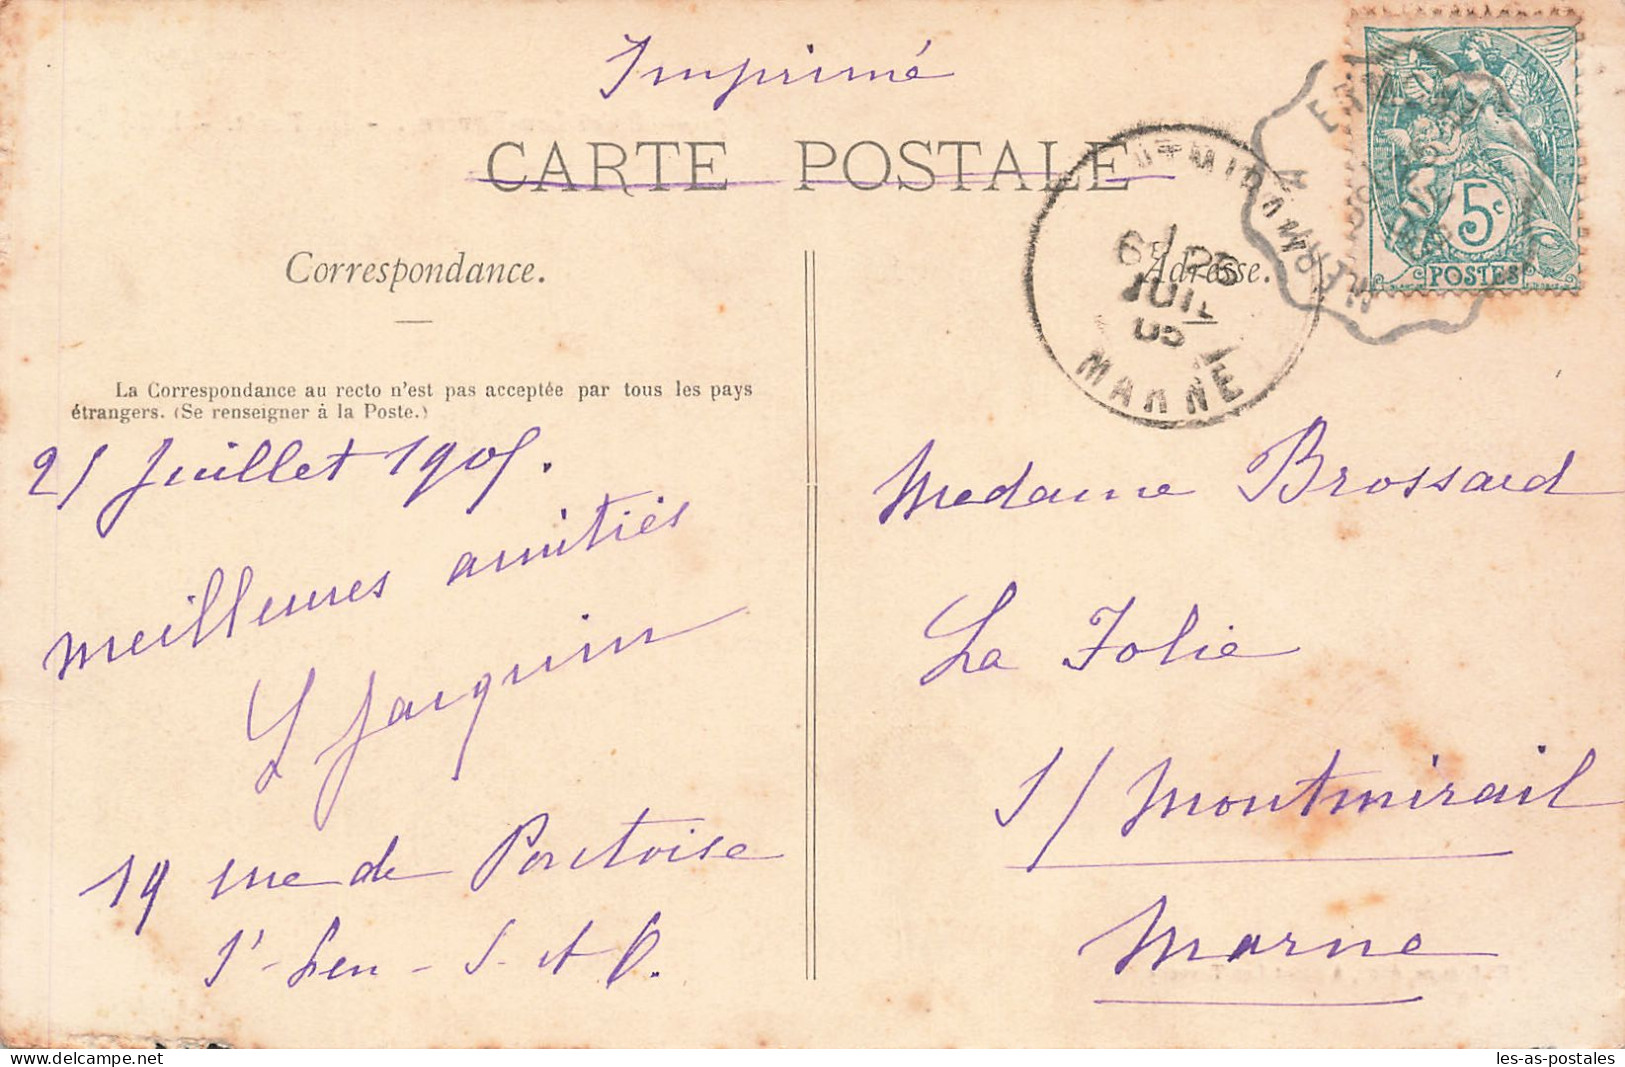 Imprimé
CARTE POSTALE
Correspondance.
Adresse.
La Correspondance au recto n'est pas acceptée par tous les pays
étrangers. (Se renseigner à la Poste.)
21 Juillet 1905.
meilleures amitiés
L Jacquin
19 rue de Pontoise
St-Leu-S. et O.
Madame Brossard
La Folie
s/ Montmirail
Marne
MARNE
5c
POSTES
les-as-postales